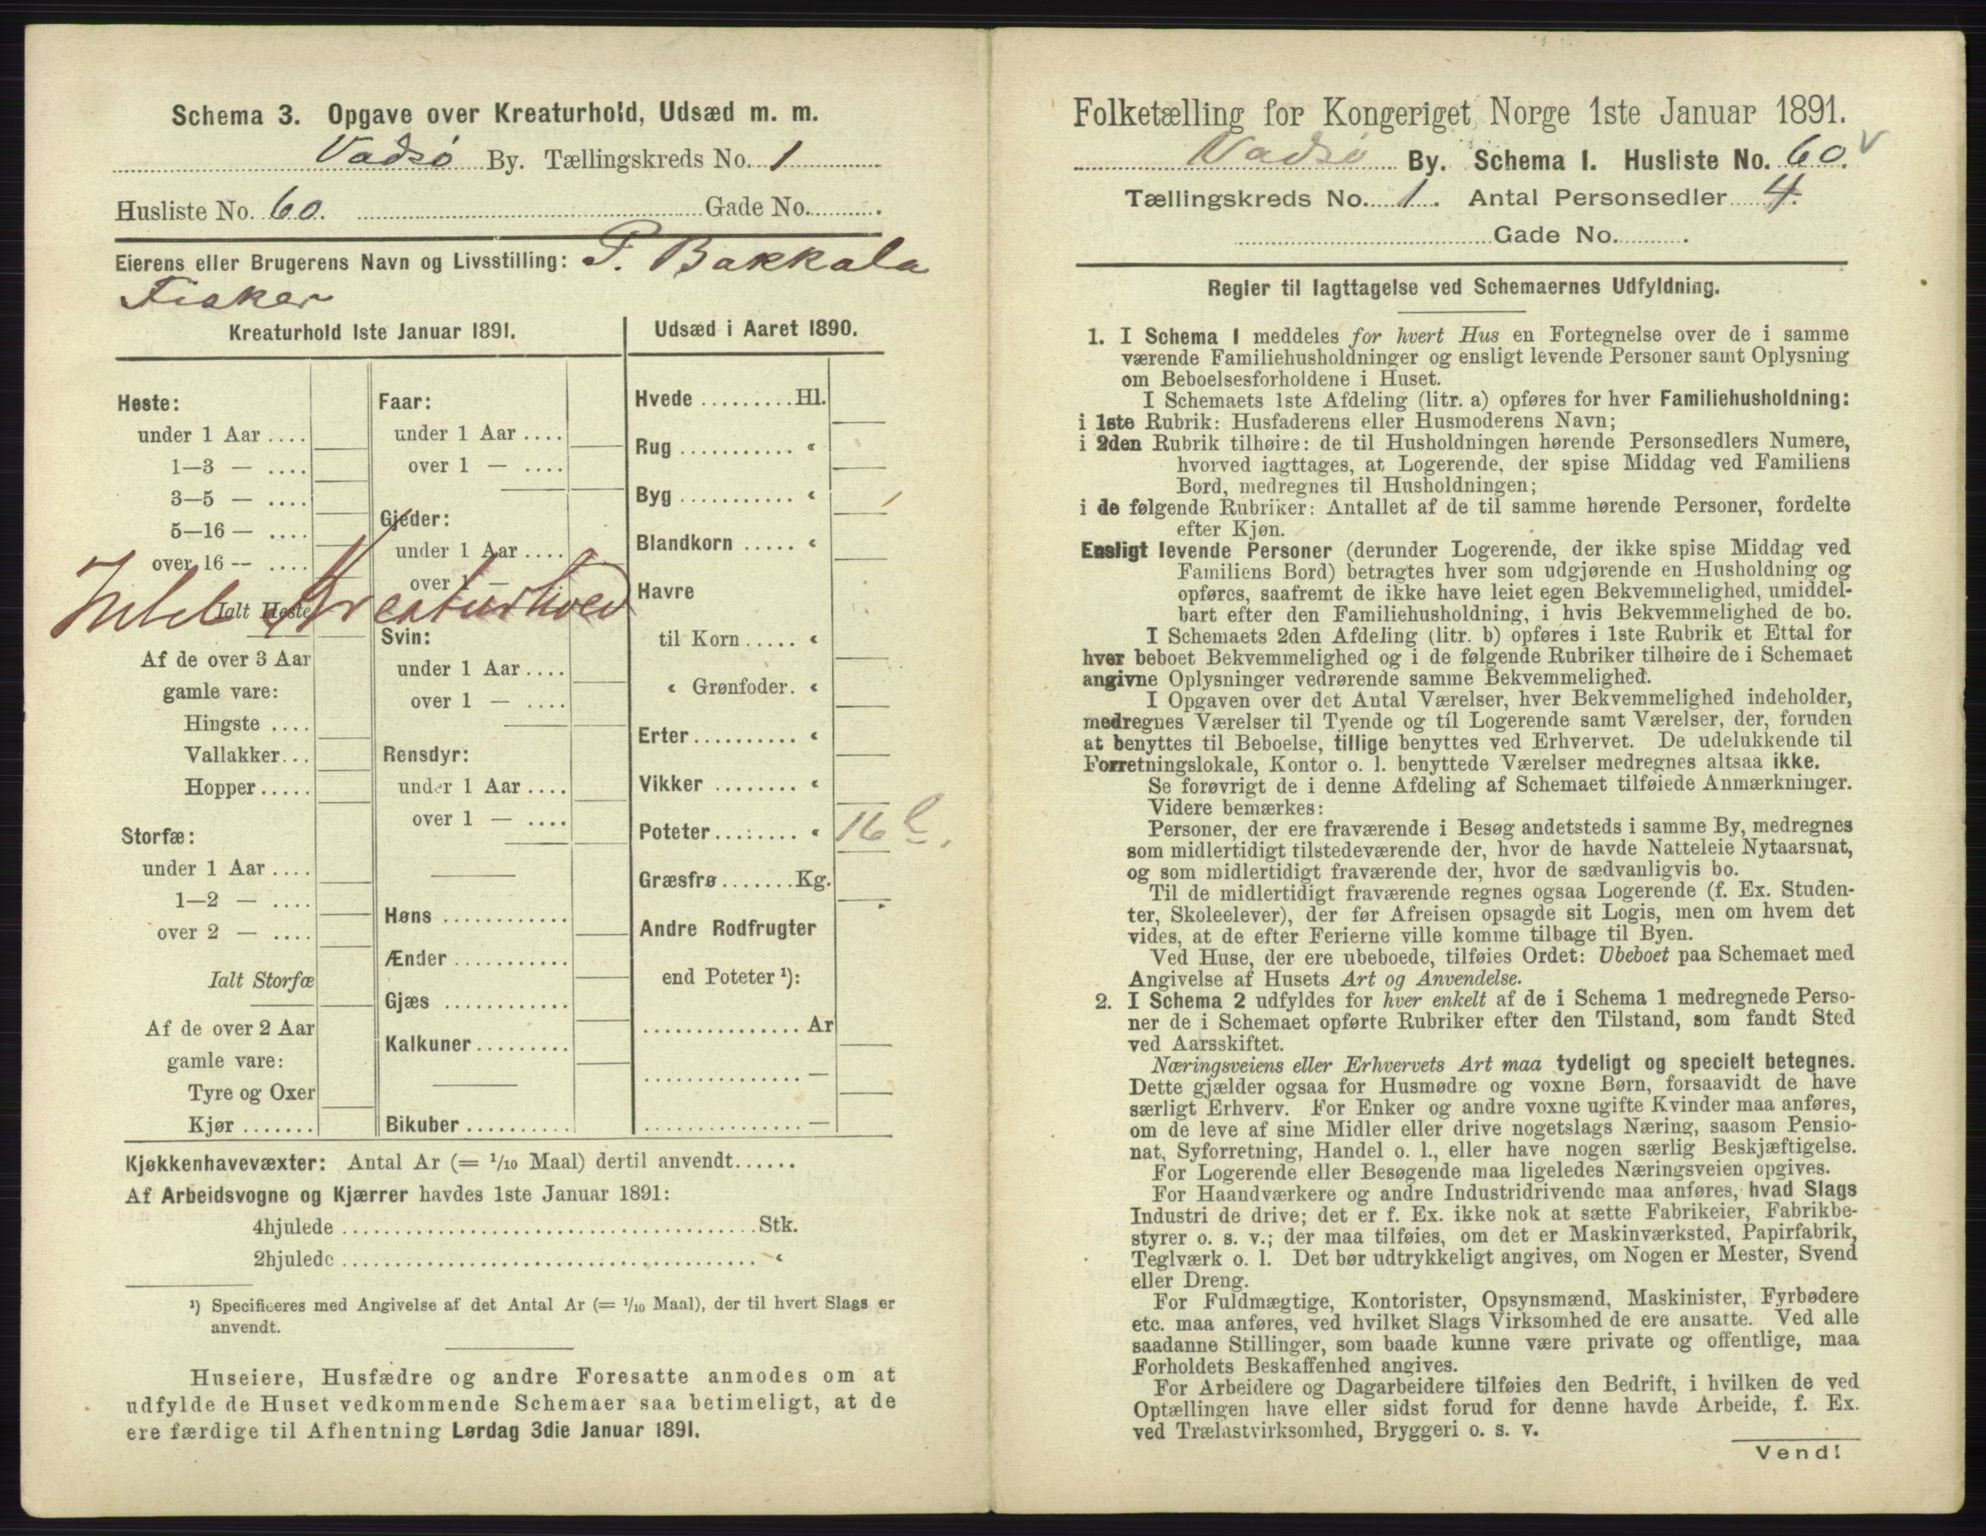 Schema 3. Opgave over Kreaturhold, Udsæd m. m.
Vadsø By. Tællingskreds No. 1
Husliste No. 60. Gade No.
Eierens eller Brugerens Navn og Livsstilling: P. Bakkala
Fisker
Kreaturhold 1ste Januar 1891.
Heste:
under 1 Aar
1—3 —
3—5 —
5—16 —
over 16 —
Ialt Heste
Af de over 3 Aar
gamle vare:
Hingste
Vallakker
Hopper
Storfæ:
under 1 Aar
1—2 —
over 2 —
Ialt Storfæ
Af de over 2 Aar
gamle vare:
Tyre og Oxer
Kjør
Faar:
under 1 Aar
over 1 —
Gjeder:
under 1 Aar
over 1 —
Kreaturhold
Svin:
under 1 Aar
over 1 —
Rensdyr:
under 1 Aar
over 1 —
Høns
Ænder
Gjæs
Kalkuner
Bikuber
Udsæd i Aaret 1890.
Hvede Hl.
Rug "
Byg "
Blandkorn "
Havre
til Korn "
" Grønfoder. "
Erter "
Vikker "
Poteter " 16 l.
Græsfrø Kg.
Andre Rodfrugter
end Poteter ¹):
Ar
—
—
Kjøkkenhavevæxter: Antal Ar (= 1/10 Maal) dertil anvendt
Af Arbeidsvogne og Kjærrer havdes 1ste Januar 1891:
4hjulede Stk.
2hjulede "
¹) Specificeres med Angivelse af det Antal Ar (= 1/10 Maal), der til hvert Slags er
anvendt.
Huseiere, Husfædre og andre Foresatte anmodes om at
udfylde de Huset vedkommende Schemaer saa betimeligt, at de
ere færdige til Afhentning Lørdag 3die Januar 1891.
Folketælling for Kongeriget Norge 1ste Januar 1891.
Vadsø By. Schema 1. Husliste No. 60.
Tællingskreds No. 1. Antal Personsedler 4.
Gade No.
Regler til Iagttagelse ved Schemaernes Udfyldning.
1. I Schema 1 meddeles for hvert Hus en Fortegnelse over de i samme
værende Familiehusholdninger og ensligt levende Personer samt Oplysning
om Beboelsesforholdene i Huset.
I Schemaets 1ste Afdeling (litr. a) opføres for hver Familiehusholdning:
i 1ste Rubrik: Husfaderens eller Husmoderens Navn;
i 2den Rubrik tilhøire: de til Husholdningen hørende Personsedlers Numere,
hvorved iagttages, at Logerende, der spise Middag ved Familiens
Bord, medregnes til Husholdningen;
i de følgende Rubriker: Antallet af de til samme hørende Personer, fordelte
efter Kjøn.
Ensligt levende Personer (derunder Logerende, der ikke spise Middag ved
Familiens Bord) betragtes hver som udgjørende en Husholdning og
opføres, saafremt de ikke have leiet egen Bekvemmelighed, umiddel-
bart efter den Familiehusholdning, i hvis Bekvemmelighed de bo.
I Schemaets 2den Afdeling (litr. b) opføres i 1ste Rubrik et Ettal for
hver beboet Bekvemmelighed og i de følgende Rubriker tilhøire de i Schemaet
angivne Oplysninger vedrørende samme Bekvemmelighed.
I Opgaven over det Antal Værelser, hver Bekvemmelighed indeholder,
medregnes Værelser til Tyende og til Logerende samt Værelser, der, foruden
at benyttes til Beboelse, tillige benyttes ved Erhvervet. De udelukkende til
Forretningslokale, Kontor o. l. benyttede Værelser medregnes altsaa ikke.
Se forøvrigt de i denne Afdeling af Schemaet tilføiede Anmærkninger.
Videre bemærkes:
Personer, der ere fraværende i Besøg andetsteds i samme By, medregnes
som midlertidigt tilstedeværende der, hvor de havde Natteleie Nytaarsnat,
og som midlertidigt fraværende der, hvor de sædvanligvis bo.
Til de midlertidigt fraværende regnes ogsaa Logerende (f. Ex. Studen-
ter, Skoleelever), der før Afreisen opsagde sit Logis, men om hvem det
vides, at de efter Ferierne ville komme tilbage til Byen.
Ved Huse, der ere ubeboede, tilføies Ordet: Ubeboet paa Schemaet med
Angivelse af Husets Art og Anvendelse.
2. I Schema 2 udfyldes for hver enkelt af de i Schema 1 medregnede Perso-
ner de i Schemaet opførte Rubriker efter den Tilstand, som fandt Sted
ved Aarsskiftet.
Næringsveiens eller Erhvervets Art maa tydeligt og specielt betegnes.
Dette gjælder ogsaa for Husmødre og voxne Børn, forsaavidt de have
særligt Erhverv. For Enker og andre voxne ugifte Kvinder maa anføres,
om de leve af sine Midler eller drive nogetslags Næring, saasom Pensio-
nat, Syforretning, Handel o. l., eller have nogen særlig Beskjæftigelse.
For Logerende eller Besøgende maa ligeledes Næringsveien opgives.
For Haandværkere og andre Industridrivende maa anføres, hvad Slags
Industri de drive; det er f. Ex. ikke nok at sætte Fabrikeier, Fabrikbe-
styrer o. s. v.; der maa tilføies, om det er Maskinværksted, Papirfabrik,
Teglværk o. l. Det bør udtrykkeligt angives, om Nogen er Mester, Svend
eller Dreng.
For Fuldmægtige, Kontorister, Opsynsmænd, Maskinister, Fyrbødere
etc. maa anføres, ved hvilket Slags Virksomhed de ere ansatte. Ved alle
saadanne Stillinger, som baade kunne være private og offentlige, maa
Forholdets Beskaffenhed angives.
For Arbeidere og Dagarbeidere tilføies den Bedrift, i hvilken de ved
Optællingen have eller sidst forud for denne havde Arbeide, f. Ex.
ved Trælastvirksomhed, Bryggeri o. s. v.
Vend!